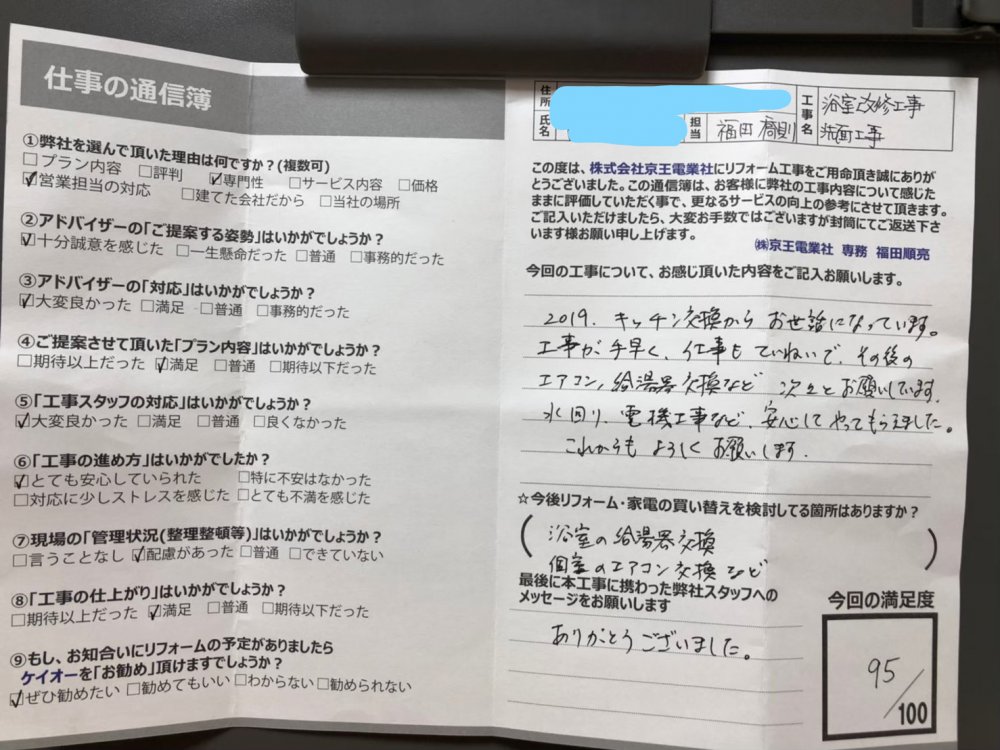 仕事の通信簿
①弊社を選んで頂いた理由は何ですか？(複数可)
□プラン内容 □評判 ☑専門性 □サービス内容 □価格
☑営業担当の対応 □建てた会社だから □当社の場所
②アドバイザーの「ご提案する姿勢」はいかがでしょうか？
☑十分誠意を感じた □一生懸命だった □普通 □事務的だった
③アドバイザーの「対応」はいかがでしょうか？
☑大変良かった □満足 □普通 □事務的だった
④ご提案させて頂いた「プラン内容」はいかがでしょうか？
□期待以上だった ☑満足 □普通 □期待以下だった
⑤「工事スタッフの対応」はいかがでしょうか？
☑大変良かった □満足 □普通 □良くなかった
⑥「工事の進め方」はいかがでしたか？
☑とても安心していられた □特に不安はなかった
□対応に少しストレスを感じた □とても不満を感じた
⑦現場の「管理状況(整理整頓等)」はいかがでしょうか？
□言うことなし ☑配慮があった □普通 □できていない
⑧「工事の仕上がり」はいかがでしょうか？
□期待以上だった ☑満足 □普通 □期待以下だった
⑨もし、お知合いにリフォームの予定がありましたら
ケイオーを「お勧め」頂けますでしょうか？
☑ぜひ勧めたい □勧めてもいい □わからない □勧められない
住所
氏名
担当 福田
工事名 浴室改修工事
洗面工事
この度は、株式会社京王電業社にリフォーム工事をご用命頂き誠にありが
とうございました。この通信簿は、お客様に弊社の工事内容について感じた
ままに評価していただく事で、更なるサービスの向上の参考にさせて頂きます。
ご記入いただけましたら、大変お手数ではございますが封筒にてご返送下さ
います様お願い申し上げます。
㈱京王電業社 専務 福田順亮
今回の工事について、お感じ頂いた内容をご記入お願いします。
2019. キッチン交換から お世話になっています。
工事が手早く、仕事もていねいで、その後の
エアコン、給湯器交換など 次々とお願いしています.
水回り、電機工事など、安心してやってもらえました。
これからも よろしく お願いします.
☆今後リフォーム・家電の買い替えを検討してる箇所はありますか？
(浴室の給湯器交換
個室のエアコン交換など)
最後に本工事に携わった弊社スタッフへの
メッセージをお願いします
ありがとうございました。
今回の満足度
95/100